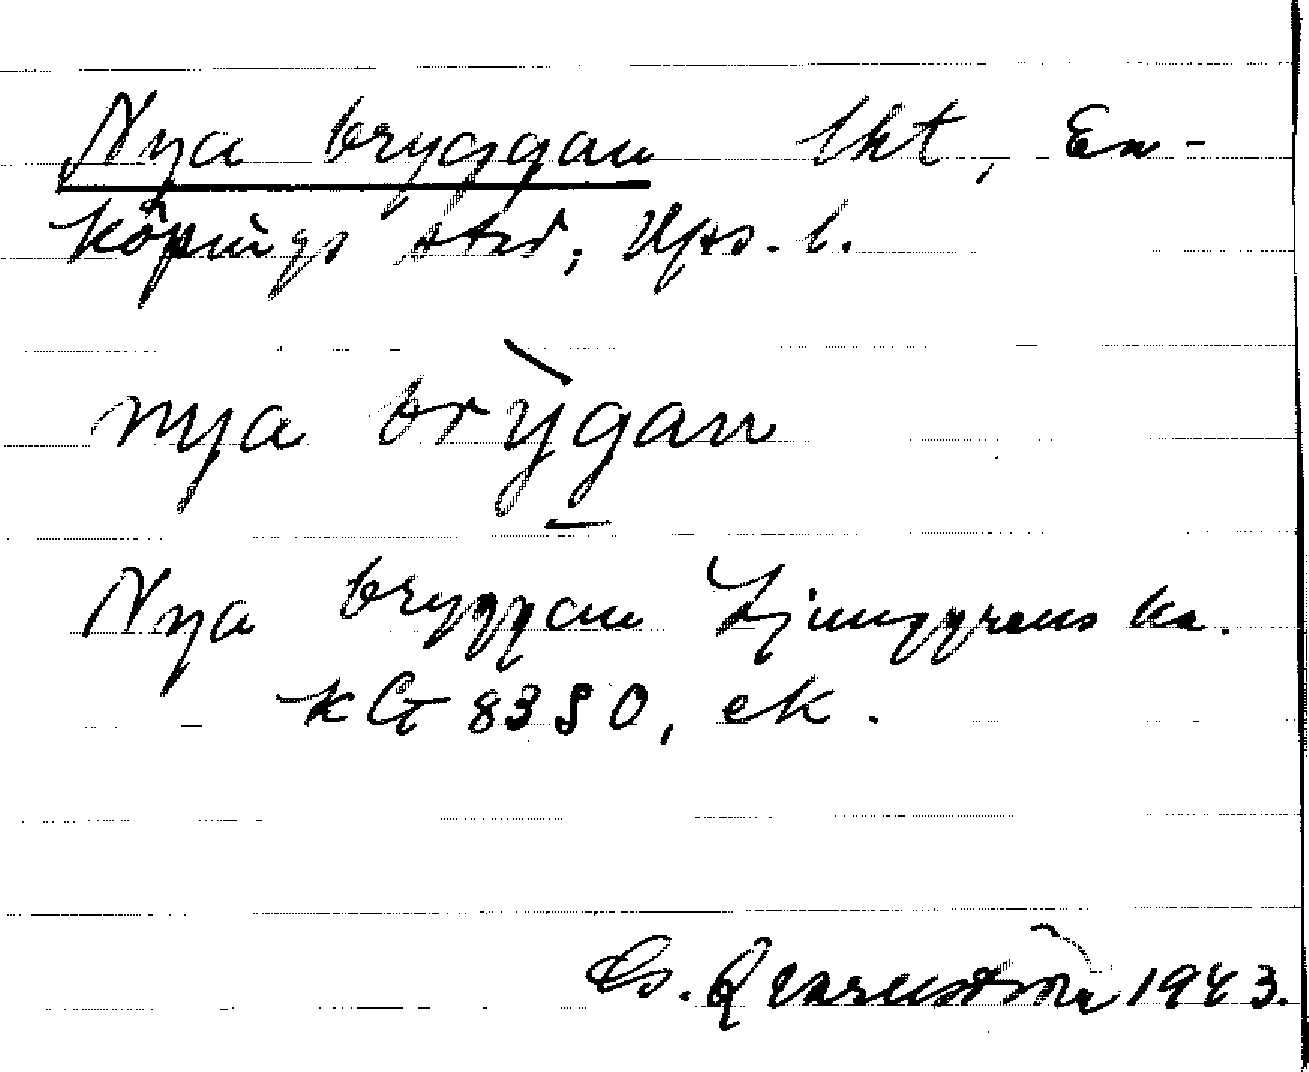 Nya bryggan lkt, En-
köpings stad, Upps. l.
nya brỳgan
Nya bryggan Ljunggrens ka.
k G 8350, ek.
G. Qvarnström 1943.